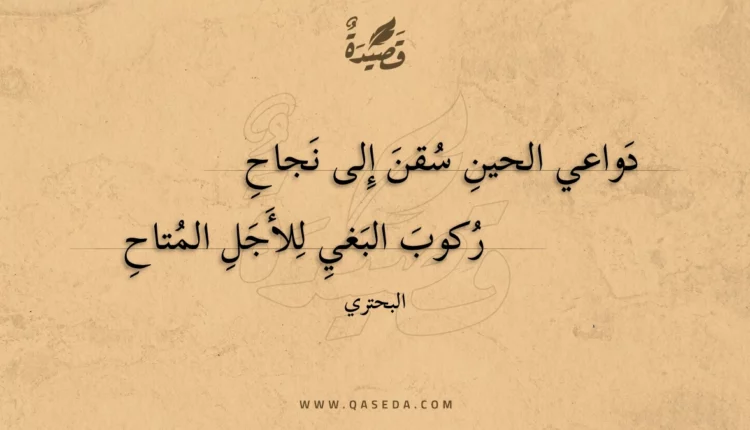 قَصِيْدَةٌ
دَواعي الحينِ سُقنَ إِلى نَجاحِ
رُكوبَ البَغيِ لِلأَجَلِ المُتاحِ
البحتري
WWW.QASEDA.COM